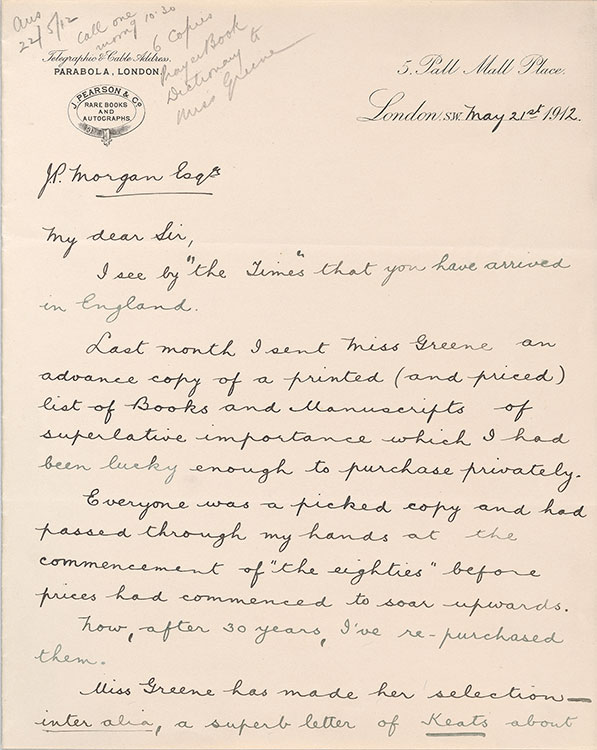 Ans
22/5/12
Call one
morng 10.30
6 Copies
Prayer Book
Dictionary to
Miss Greene
Telegraphic & Cable Address,
PARABOLA, LONDON.
J. PEARSON & Co
RARE BOOKS
AND
AUTOGRAPHS.
5, Pall Mall Place.
London, S.W. May 21st 1912.
J.P. Morgan Esqre
My dear Sir,
I see by "the Times" that you have arrived
in England.
Last month I sent Miss Greene an
advance copy of a printed (and priced)
list of Books and Manuscripts of
superlative importance which I had
been lucky enough to purchase privately.
Everyone was a picked copy and had
passed through my hands at the
commencement of "the eighties" before
prices had commenced to soar upwards.
Now, after 30 years, I've re-purchased
them.
Miss Greene has made her selection—
inter alia, a superb letter of Keats about